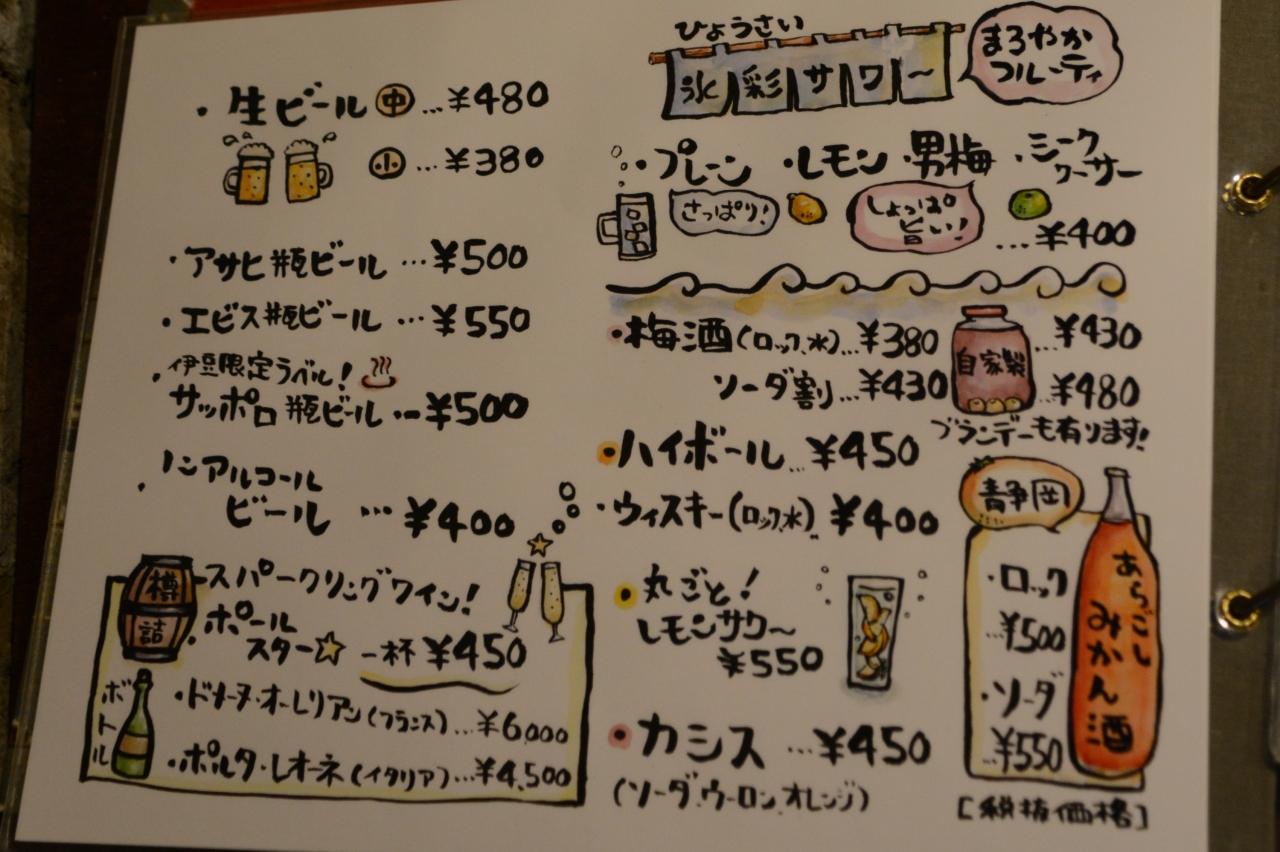 ・生ビール㊥…¥480
㊙小…¥380
・アサヒ瓶ビール…¥500
・エビス瓶ビール…¥550
・伊豆限定ラベル!♨
サッポロ瓶ビール…¥500
・ノンアルコール
ビール…¥400
樽詰
スパークリングワイン!
・ポールスター☆ 一杯 ¥450
ボトル
・ドメーヌ・オーレリアン(フランス)…¥6,000
・ポルタ・レオーネ(イタリア)…¥4,500
ひょうさい
氷彩サワー
まろやか
フルーティ
・プレーン ・レモン ・男梅 ・シークワーサー
さっぱり!
しょっぱ旨い!
…¥400
・梅酒(ロック、水)…¥380
自家製
…¥430
ソーダ割…¥430
…¥480
ブランデーも有ります!
・ハイボール…¥450
・ウィスキー(ロック、水)…¥400
・丸ごと!
レモンサワ〜
¥550
・カシス…¥450
(ソーダ、ウーロン、オレンジ)
静岡
あらごし
みかん酒
・ロック
…¥500
・ソーダ
¥550
[税抜価格]